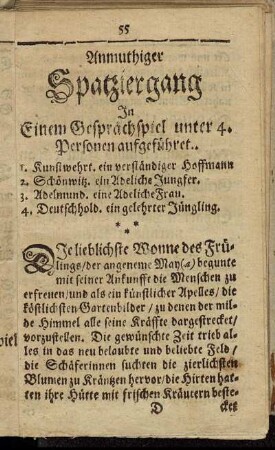 55
Anmuthiger
Spatziergang
In
Einem Gesprächspiel unter 4.
Personen aufgeführet..
1. Kunstwehrt. ein verständiger Hoffmann
2. Schönwitz. ein Adelichs Jungfer.
3. Adelmund. eine Adeliche Frau.
4. Deutschhold. ein gelehrter Jüngling.
* * *
DJe lieblichste Wonne des Frü-
lings/der angeneme May(a) begunte
mit seiner Ankunfft die Menschen zu
erfreuen/und als ein künstlicher Apelles/ die
köstlichsten Gartenbilder/ zu denen der mil-
de Himmel alle seine Kräffte dargestrecket/
vorzustellen. Die gewünschte Zeit trieb al-
les in das neu belaubte und beliebte Feld/
die Schäferinnen suchten die zierlichsten
Blumen zu Kräntzen hervor/die Hirten hat-
ten ihre Hütte mit frischen Kräutern beste-
D cket